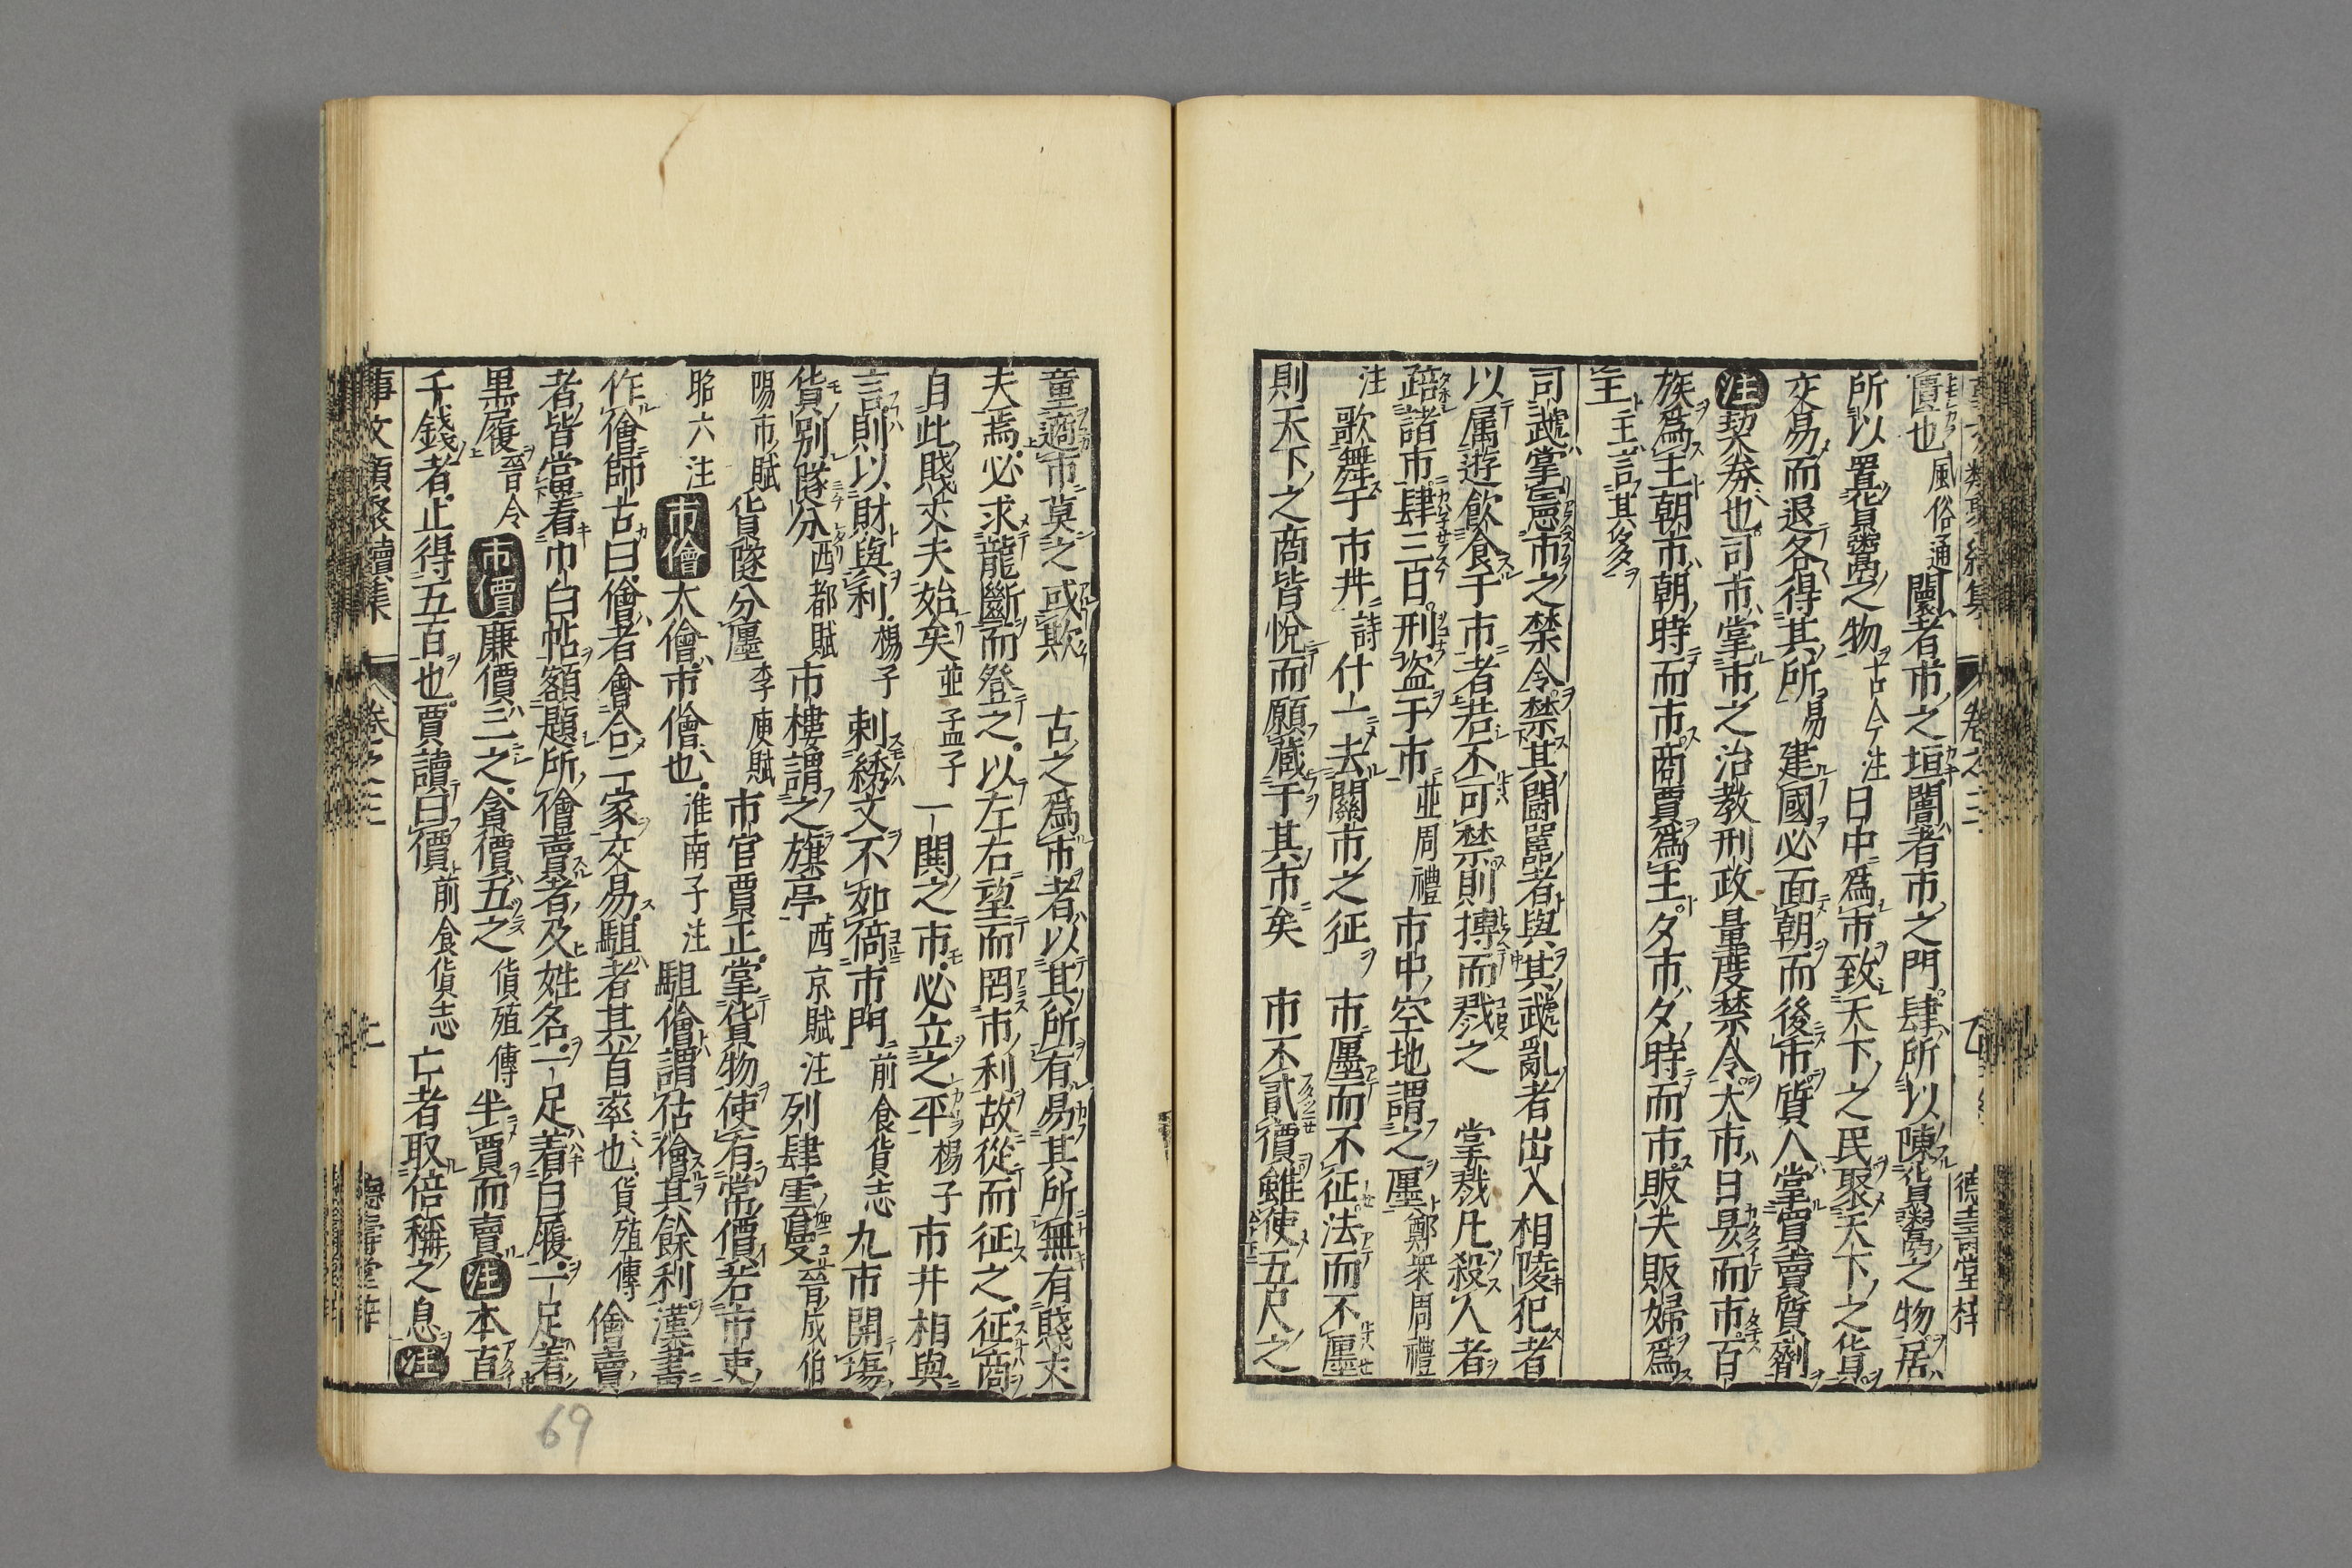 匵也風俗通闤者市之垣闠者市之門肆所以陳貨鬻之物居
所以置貨鬻之物古今注日中爲市致天下之民聚天下之貨
交易而退各得其所易建國必面朝而後市質人掌賣賣質劑
注契券也司市掌市之治教刑政量度禁令大市日昃而市百
族爲主朝市朝時而市商賈爲主夕市夕時而市販夫販婦爲
主主言其多
司虣掌憲市之禁令禁其鬪嚻者與其虣亂者出入相陵犯者
以属遊飲食于市者若不可禁則搏而戮之 掌戮凡殺人者
踣諸市肆三日刑盗于市並周禮市中空地謂之廛鄭衆周禮
注歌舞于市井詩什一去關市之征 市廛而不征法而不廛
則天下之商皆悅而願藏于其市矣 市不貳價雖使五尺之
童適市莫之或欺 古之爲市者以其所有易其所無有賤夫
夫焉必求龍斷而登之以左右望而罔市利故從而征之征商
自此賤丈夫始矣並孟子一閧之市必立之平楊子市井相與
言則以財與利楊子刺綉文不如倚市門前食貨志九市開場
貨別隧分西都賦市樓謂之旗亭西京賦注列肆雲曼晉成伯
陽市賦貨隧分廛李庾賦市官賈正掌貨物使有常價若市吏
昭六注市儈大儈市儈也淮南子注駔儈謂估儈其餘利漢書
作儈師古曰儈者會合二家交易駔者其首率也貨殖傳儈賣
者皆當着巾白帖額題所儈賣者及姓名一足着白履一足着
黒履晉令市價廉價三之貪價五之貨殖傳半賈而賣注本直
千錢者止得五百也賈讀曰價前食貨志亡者取倍稱之息注
事文類聚續集 卷之三